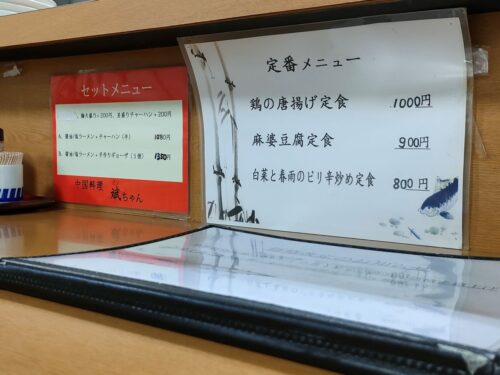 セットメニュー
麺大盛り+200円、玉盛りチャーハン+200円
A. 醤油/塩ラーメン+チャーハン(半)
B. 醤油/塩ラーメン+手作りギョーザ(5個)
中国料理 斌ちゃん
定番メニュー
鶏の唐揚げ定食 1000円
麻婆豆腐定食 900円
白菜と春雨のピリ辛炒め定食 800円